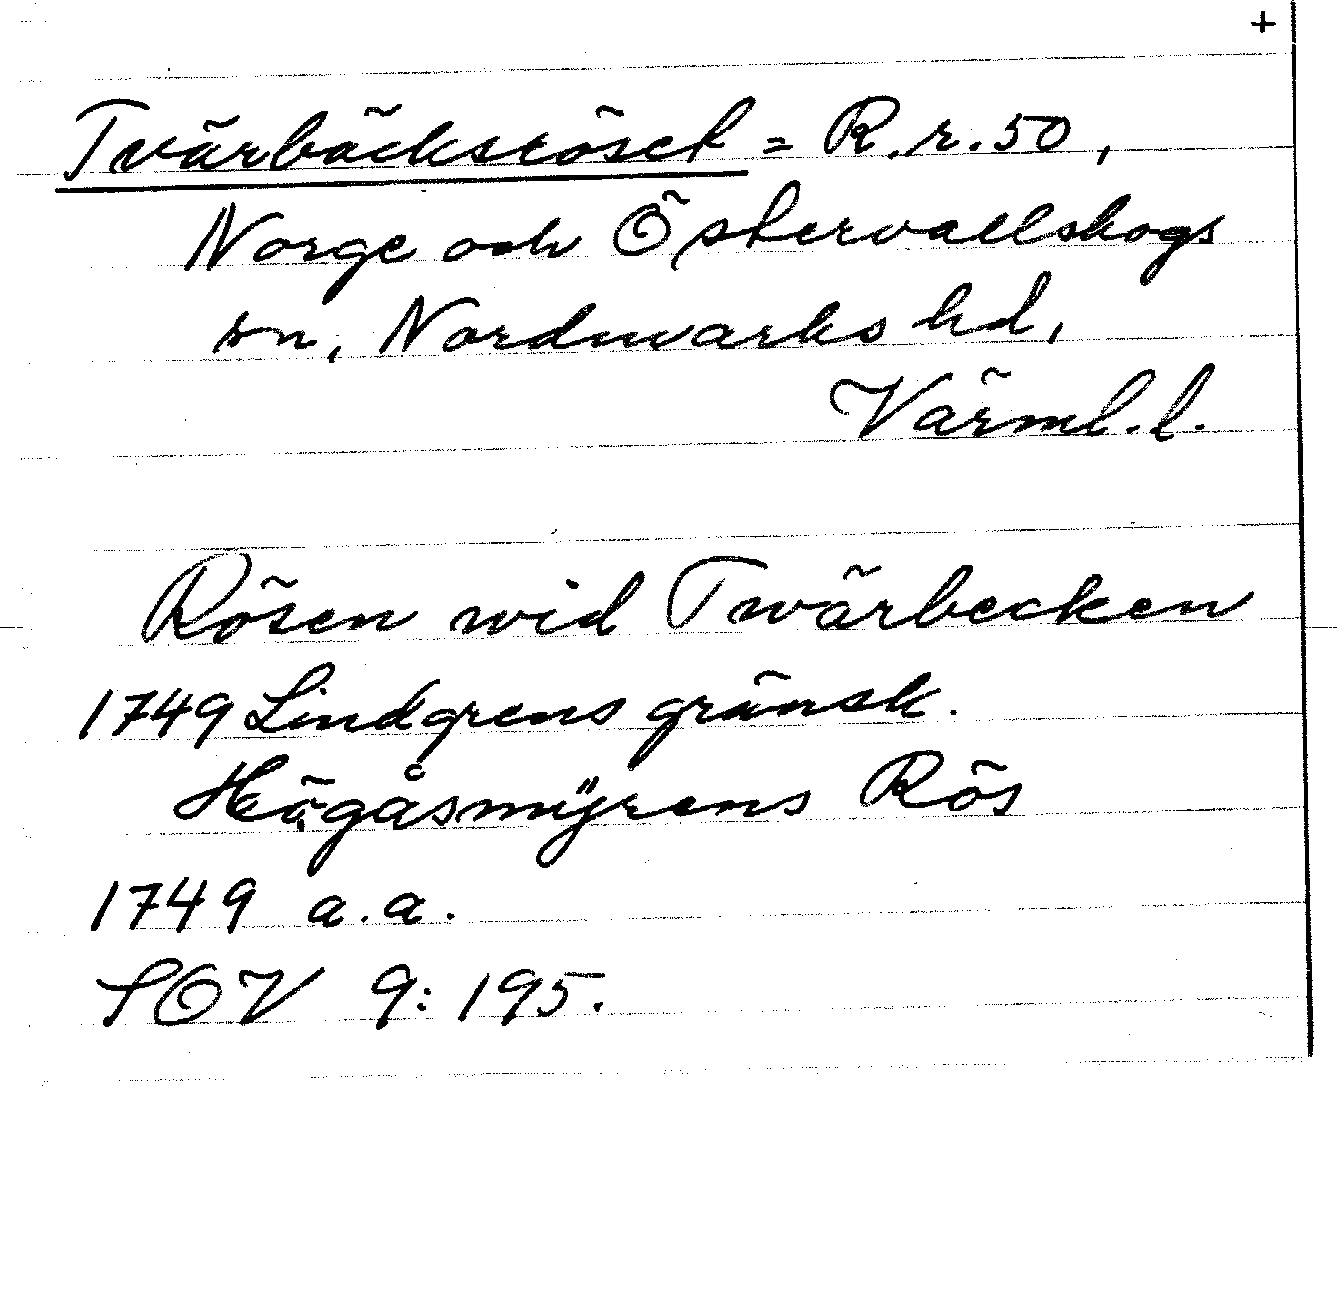 +
Tvärbäcksröset = R.r.50,
Norge och Östervallskogs
sn, Nordmarks hd,
Värml.l.
Rösen wid Twärbecken
1749 Lindgrens gränsk.
Högåsmÿrens Rös
1749 a.a.
SOV 9:195.